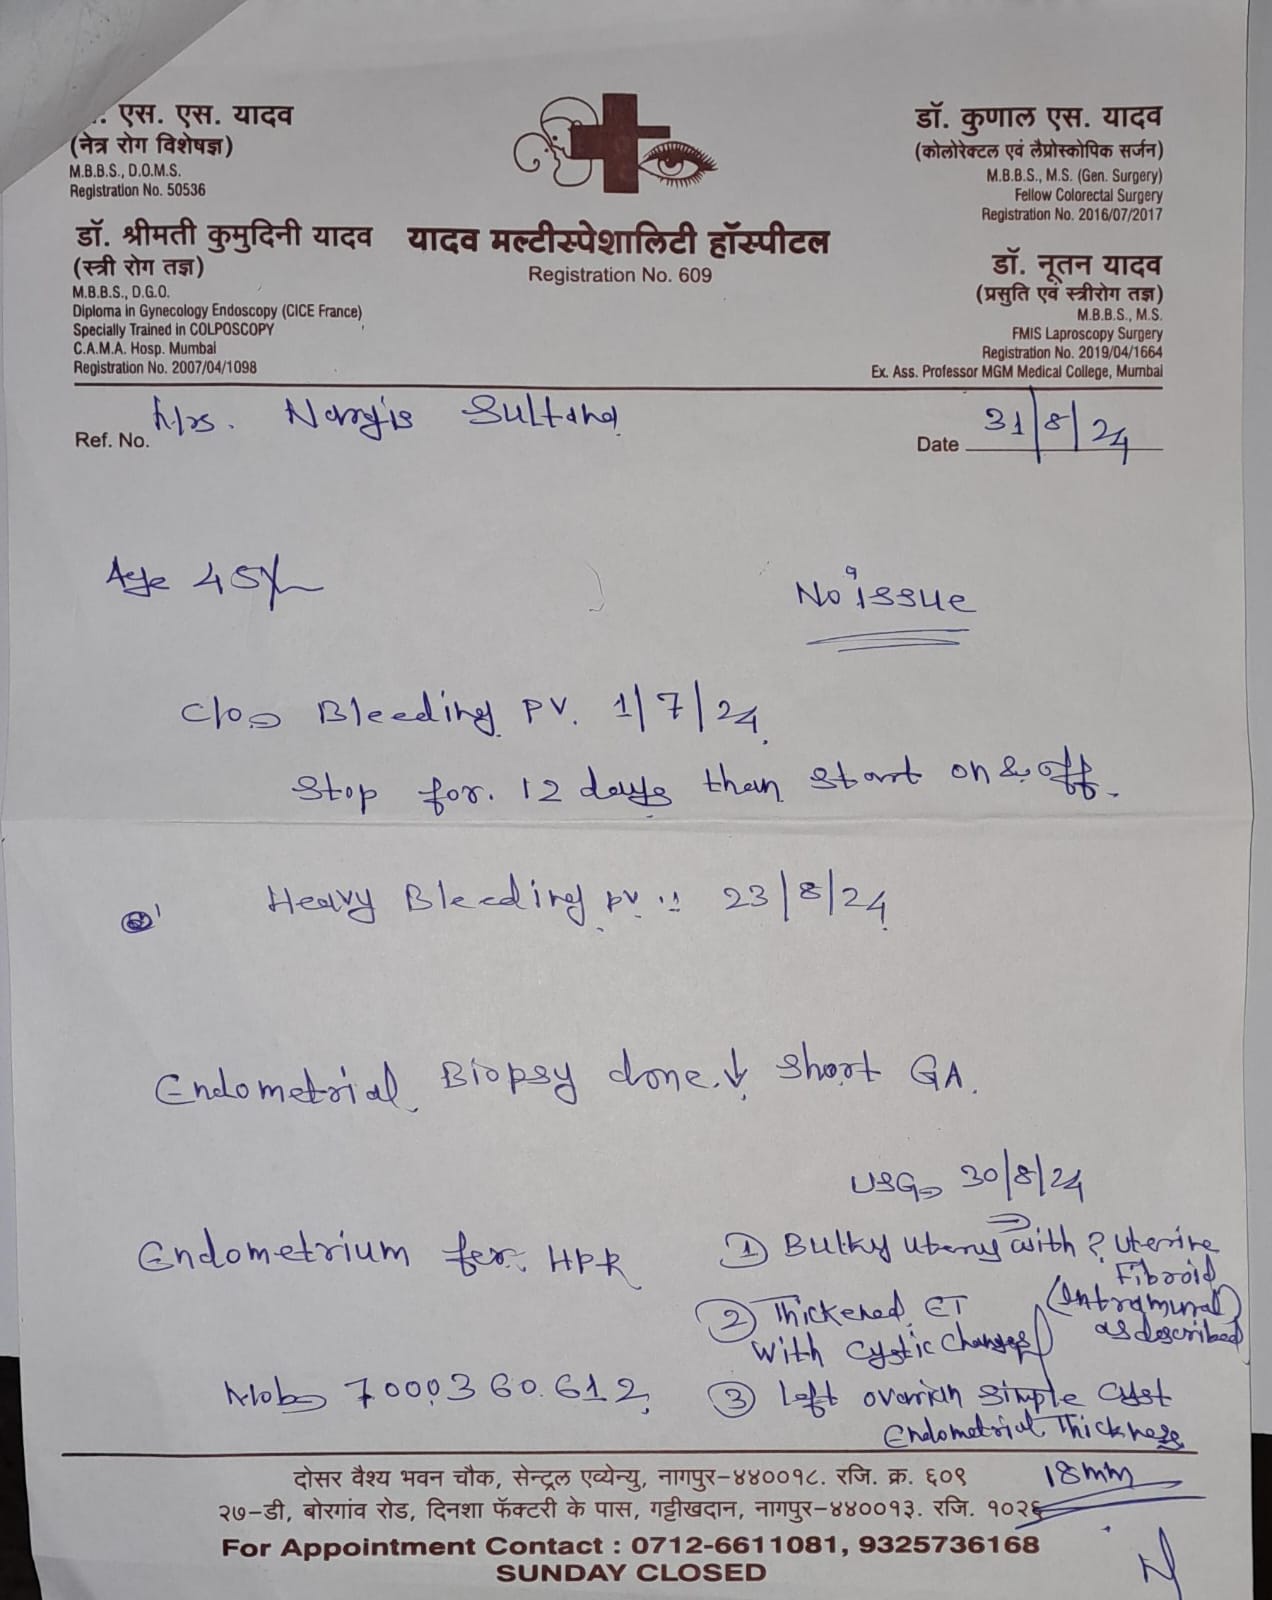 . एस. एस. यादव
(नेत्र रोग विशेषज्ञ)
M.B.B.S., D.O.M.S.
Registration No. 50536
डॉ. श्रीमती कुमुदिनी यादव
(स्त्री रोग तज्ञ)
M.B.B.S., D.G.O.
Diploma in Gynecology Endoscopy (CICE France)
Specially Trained in COLPOSCOPY
C.A.M.A. Hosp. Mumbai
Registration No. 2007/04/1098
यादव मल्टीस्पेशालिटी हॉस्पीटल
Registration No. 609
डॉ. कुणाल एस. यादव
(कोलोरेक्टल एवं लैप्रोस्कोपिक सर्जन)
M.B.B.S., M.S. (Gen. Surgery)
Fellow Colorectal Surgery
Registration No. 2016/07/2017
डॉ. नूतन यादव
(प्रसुति एवं स्त्रीरोग तज्ञ)
M.B.B.S., M.S.
FMIS Laproscopy Surgery
Registration No. 2019/04/1664
Ex. Ass. Professor MGM Medical College, Mumbai
Ref. No. Mrs. Nargis Sultana
Date 31/8/24
Age 45
No issue
C/o Bleeding PV. 1/7/24
Stop for. 12 days than start on & off.
Heavy Bleeding PV 23/8/24
Endometrial Biopsy done ↓ short GA.
Endometrium for HPR
Mob 7000360612
USG 30/8/24
① Bulky uterus with ? uterine
Fibroid
(Intramural)
as described
② Thickened ET
with cystic changes
③ Left ovarian simple cyst
Endometrial Thickness
18mm
दोसर वैश्य भवन चौक, सेन्ट्रल एव्येन्यु, नागपुर-४४००१८. रजि. क्र. ६०९
२७-डी, बोरगांव रोड, दिनशा फॅक्टरी के पास, गट्टीखदान, नागपुर-४४००१३. रजि. १०२६
For Appointment Contact : 0712-6611081, 9325736168
SUNDAY CLOSED